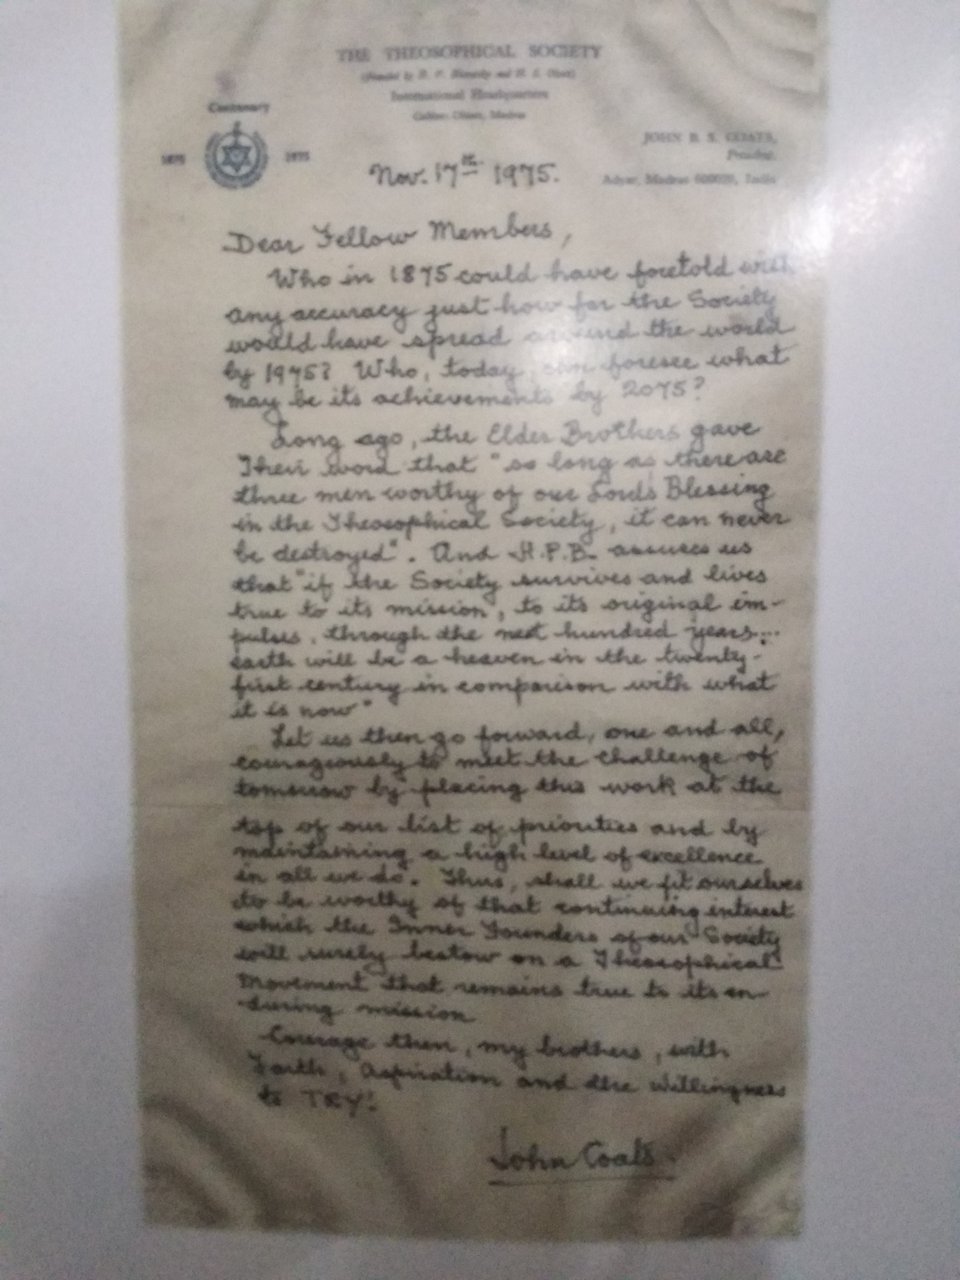 THE THEOSOPHICAL SOCIETY
(Founded by H. P. Blavatsky and H. S. Olcott)
International Headquarters
Cables: Olcott, Madras
Centenary
1875 1975
JOHN B. S. COATS,
President.
Adyar, Madras 600020, India
Nov. 17th 1975.
Dear Fellow Members,
Who in 1875 could have foretold with
any accuracy just how far the Society
would have spread around the world
by 1975? Who, today, can foresee what
may be its achievements by 2075?
Long ago, the Elder Brothers gave
Their word that "so long as there are
three men worthy of our Lord's Blessing
in the Theosophical Society, it can never
be destroyed". And H.P.B. assures us
that "if the Society survives and lives
true to its mission, to its original im-
pulses, through the next hundred years...
earth will be a heaven in the twenty-
first century in comparison with what
it is now"
Let us then go forward, one and all,
courageously to meet the challenge of
tomorrow by placing this work at the
top of our list of priorities and by
maintaining a high level of excellence
in all we do. Thus, shall we fit ourselves
to be worthy of that continuing interest
which the Inner Founders of our Society
will surely bestow on a Theosophical
Movement that remains true to its en-
during mission
Courage then, my brothers, with
Faith, Aspiration and the Willingness
to TRY!
John Coats.